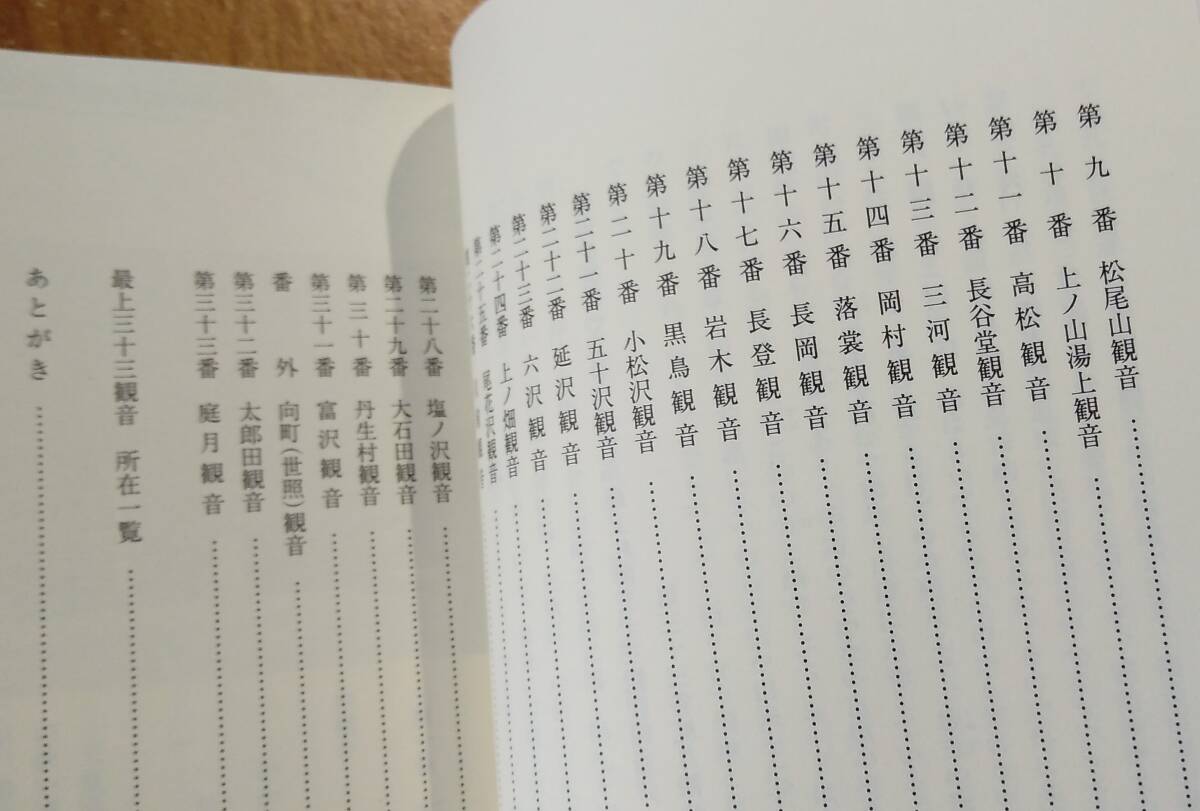 第九番 松尾山観音
第十番 上ノ山湯上観音
第十一番 高松観音
第十二番 長谷堂観音
第十三番 三河観音
第十四番 岡村観音
第十五番 落裳観音
第十六番 長岡観音
第十七番 長登観音
第十八番 岩木観音
第十九番 黒鳥観音
第二十番 小松沢観音
第二十一番 五十沢観音
第二十二番 延沢観音
第二十三番 六沢観音
第二十四番 上ノ畑観音
第二十五番 尾花沢観音
第二十八番 塩ノ沢観音
第二十九番 大石田観音
第三十番 丹生村観音
第三十一番 富沢観音
番外 向町(世照)観音
第三十二番 太郎田観音
第三十三番 庭月観音
最上三十三観音 所在一覧
あとがき